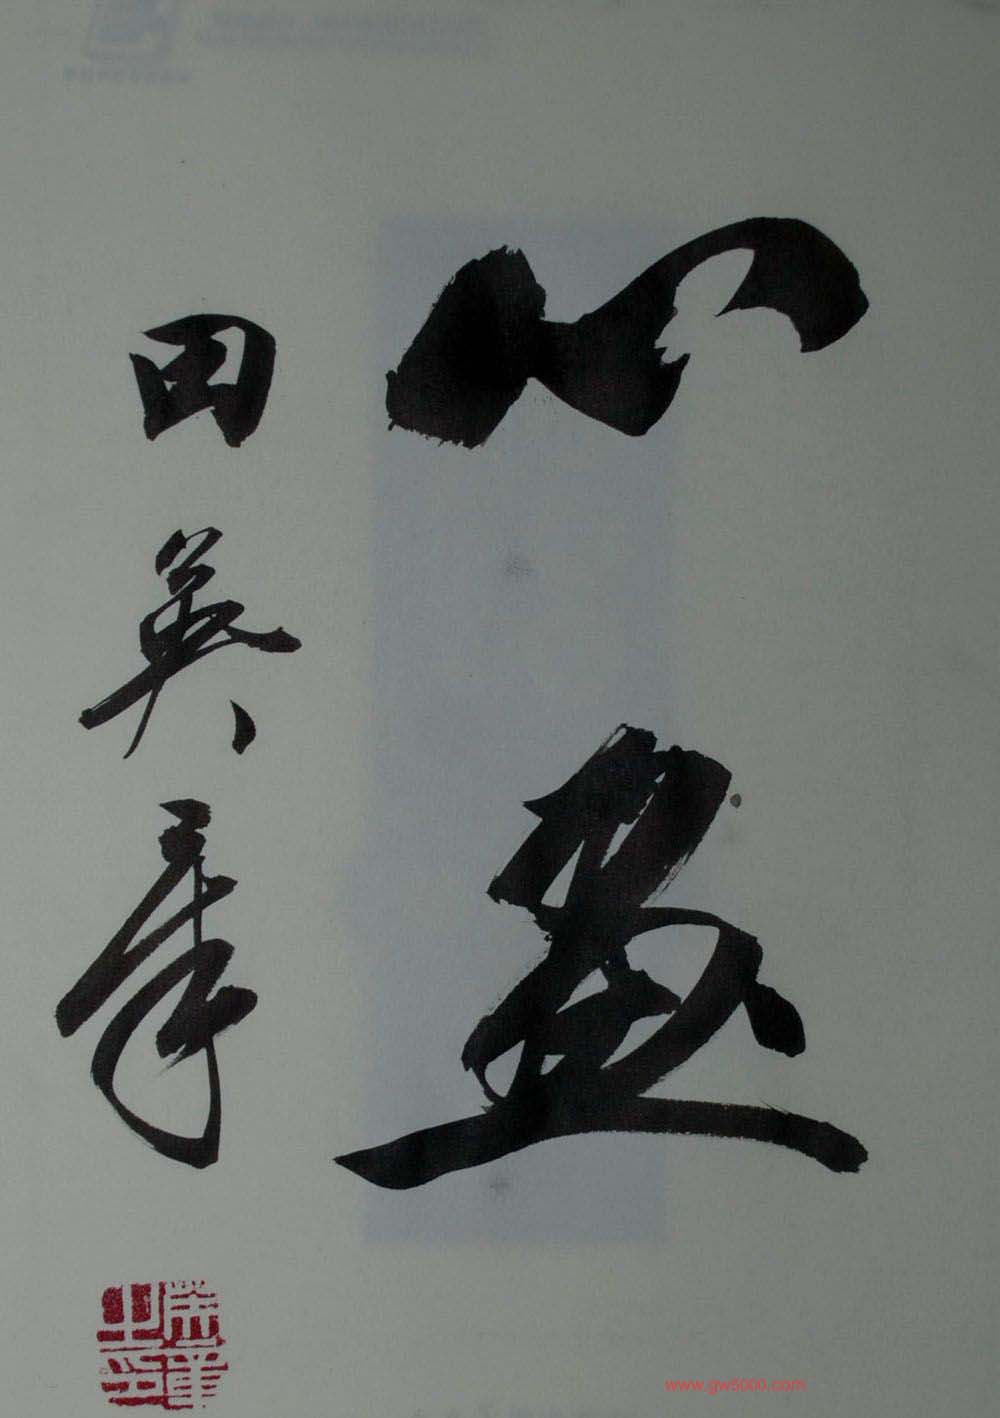 心画
田英章
www.gw5000.com